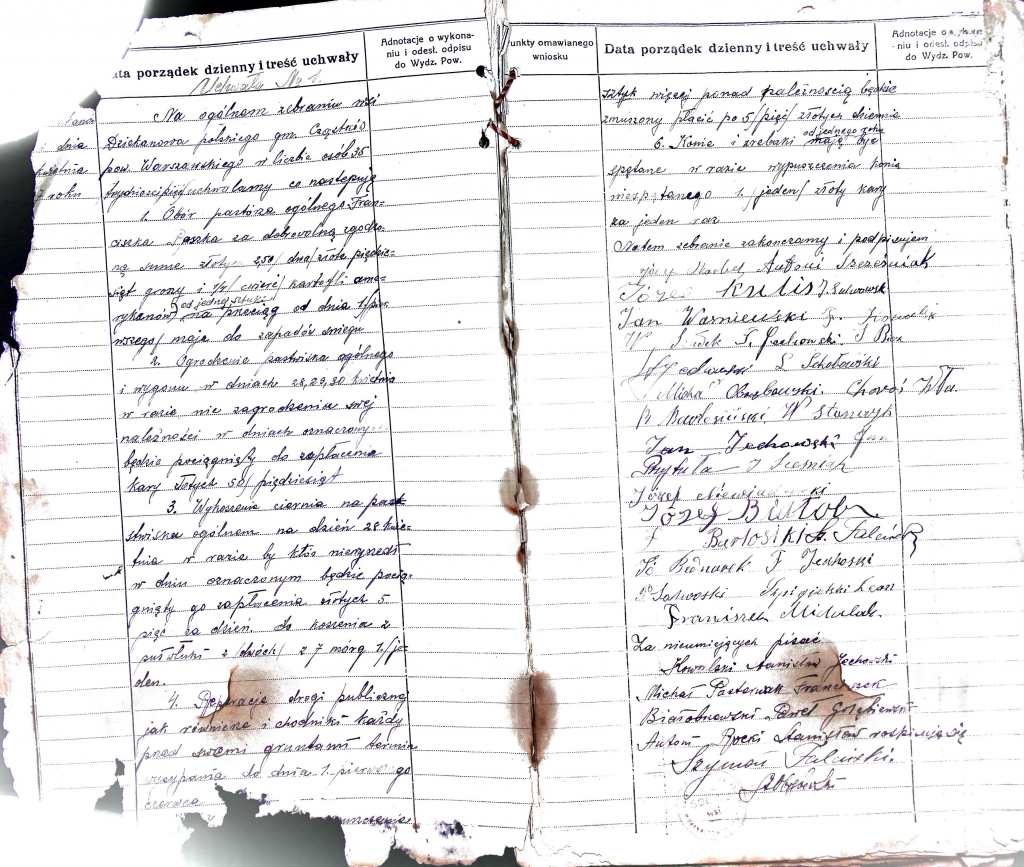 ata porządek dzienny i treść uchwały
Adnotacje o wykona-
niu i odesł. odpisu
do Wydz. Pow.
Uchwała No 1.
Na ogólnem zebraniu wsi
dnia Dziekanowa polskiego gm. Cząstków
kwietnia pow. Warszawskiego w liczbie osób 35
roku trzydzieści pięć/ uchwalamy co następuję
1. Obiór pastórza ogólnego Fran-
ciszka Paszka za dobrowolną zgodzo-
ną sumę złotych 2,50/dwa/złote pięćdzie-
siąt groszy i 1/4/ćwierć/ kartofli ame-
rykanów/ od jednej sztuki na przeciąg od dnia 1/pier
wszego/ maja do zapadów śniegu
2. Ogrodzenie pastwiska ogólnego
i wygonu w dniach 28,29,30 kwietnia
w razie nie zagrodzenia swej
należności w dniach oznaczonych
będzie pociągnięty do zapłacenia
kary złotych 50/pięćdziesiąt
3. Wykoszenie ciernia na past
stwisku ogólnem na dzień 28 kwie-
tnia w razie by ktoś niewyszedł
w dniu oznaczonym będzie pocią-
gnięty go zapłacenia złotych 5
pięć za dzień. do koszenia z
pułwłuki 2/dwóch/ z 7 mórg 1/je-
den.
4. Reperacje drogi publicznej
jak również i chodniki każdy
przed swemi gruntami termin
wysypania do dnia 1. pierwszego
czerwca
Punkty omawianego
wniosku
Data porządek dzienny i treść uchwały
Adnotacje o
niu i odesł. odpisu
do Wydz. Pow.
sztyk więcej ponad należnością będzie
zmuszony płacić po 5/pięć/ złotych dziennie
6. Konie i zrebaki od jednego roku mają być
spętane w razie wypuszczenia konia
niespętanego 1./jeden/ złoty kary
za jeden raz
Natem zebranie zakonczamy i podpisujem
Antoni Szcześniak
Józef Kulis J. Salwowski
Jan Waśniewski F. Kowalski
W F. Jechowski. J
L Schabowski
Michał Chrabowski. Choroś Wła.
W Stanczyk
Jan Jechowski Jan
Przytuła J Siemiak
Józef
Józef
F Bartosiki
Bednarek F Jechoski
P Salwoski Leon
Franiszek Mikulak.
Za nieumiejących pisać
Kowalski Stanisław Jechowski
Michał Pasternak Franciszek
Białobrzewski Paweł Gołębiewski
Antoni Rocki Stanisław rospisują się
Szymon Falciński.